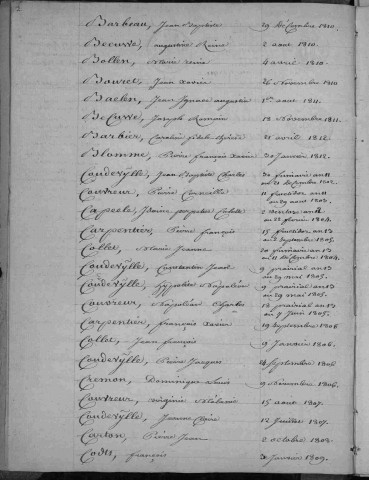 Barbeau, Jean Baptiste 29 décembre 1810.
Becuwe, augustine Reine 2 aout 1810.
Bollen, Marie reine 4 avril 1810.
Bouret, Jean xavier 26 Novembre 1810
Baelen, Jean Ignace augustin 1er aout 1811.
BeCuwe, Joseph Romain 18 Novembre 1811.
Barbier, Caroline fidele 21 avril 1812
Blomme, Pierre françois xavier 30 Janvier 1812.
Coudevylle, Jean Baptiste Charles 30 frimaire an 11
ou 21 décembre 1802.
Couvreur, Pierre Corneille 11 fructidor an 11
ou 29 aout 1803.
Capeele, perpetue Colette 2 Ventose an 12
ou 22 fevrier 1804.
Carpentier, Pierre françois 15 fructidor an 13
ou 2 Septembre 1805.
Collet, Marie Jeanne 20 frimaire an 13
ou 11 décembre 1804.
Coudevylle, Constantin Jean 9 prairial an 13
ou 29 may 1805.
Coudevylle, hyppolite Napoléon 9 prairial an 13
ou 29 may 1805.
Couvreur, Napoléon Charles 18 prairial an 13
ou 7 Juin 1805.
Carpentier, françois xavier 19 Septembre 1806
Collet, Jean françois 9 Janvier 1806.
Coudevylle, Pierre Jacques 14 Septembre 1806.
Cremon, Dominique Louis 9 décembre 1806.
Couvreur, virginie 15 aout 1807.
Coudevylle, Jeanne Claire 12 Juillet 1807.
Carton, Pierre Jean 2 octobre 1808.
françois Janvier 1809.